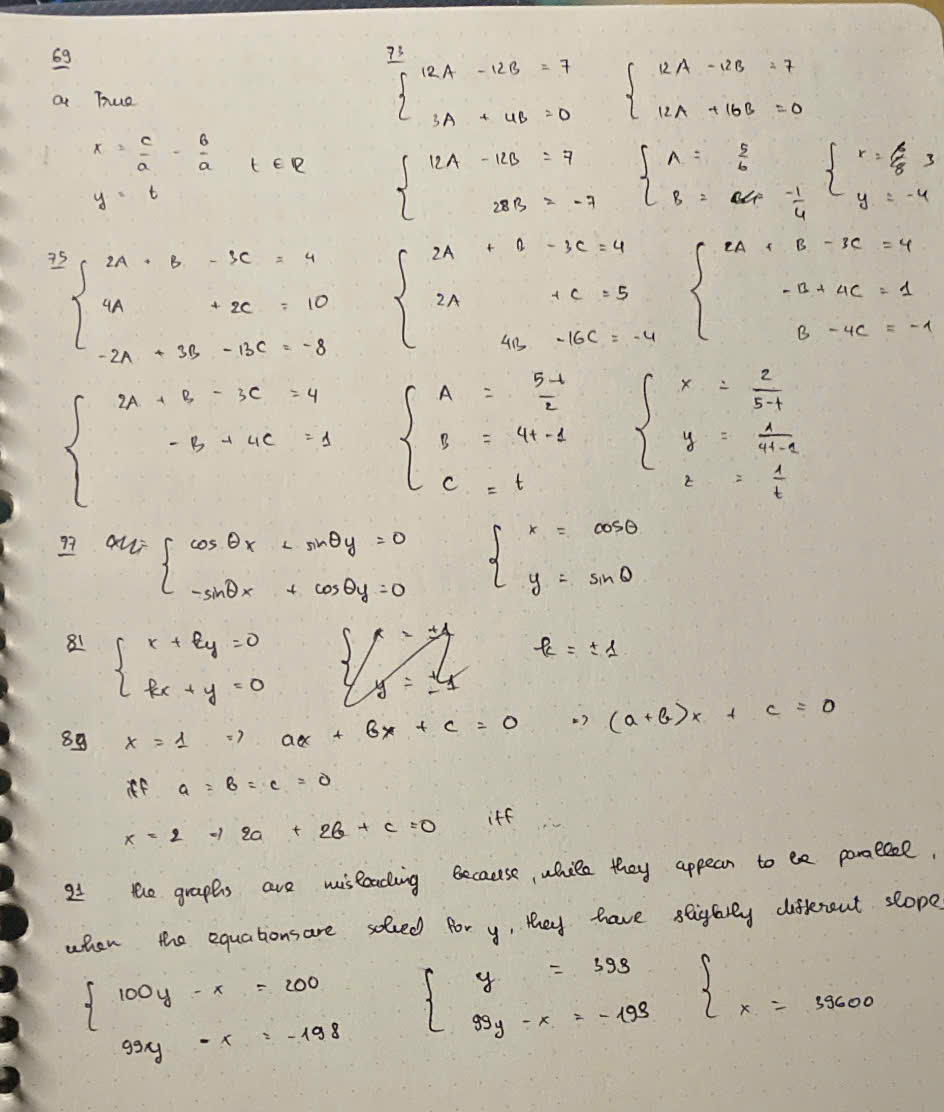 69
a. True
x = c/a - b/a t ∈ R
y = t
73
{ 12A - 12B = 7
3A + 4B = 0
{ 12A - 12B = 7
12A + 16B = 0
{ 12A - 12B = 7
28B = -7
{ A = 5/6
B = -1/4
{ x = 3
y = -4
75
{ 2A + B - 3C = 4
4A + 2C = 10
-2A + 3B - 13C = -8
{ 2A + B - 3C = 4
2A + C = 5
4B - 16C = -4
{ 2A + B - 3C = 4
-B + 4C = 1
B - 4C = -1
{ 2A + B - 3C = 4
-B + 4C = 1
{ A = 5-t/2
B = 4t-1
C = t
{ x = 2/5-t
y = 1/4t-1
z = 1/t
77
{ cosθx + sinθy = 0
-sinθx + cosθy = 0
{ x = cosθ
y = sinθ
81
{ x + ky = 0
kx + y = 0
{ x = ±1
y = ±1
k = ±1
89 x = 1 => ax + bx + c = 0 => (a+b)x + c = 0
iff a = b = c = 0
x = 2 => 2a + 2b + c = 0 iff
91 the graphs are misleading because, while they appear to be parallel,
when the equations are solved for y, they have slightly different slope
{ 100y - x = 200
99xy - x = -198
{ y = 398
99y - x = -198
{ x = 39600